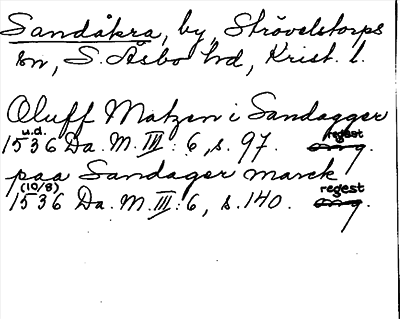 Sandåkra, by, Strövelstorps
sn, S. Åsbo hd, Krist. l.
Oluff Matzen i Sandagger
u.d. regest
1536 Da. M. III: 6, s. 97. orig.
paa Sandager marck
(10/8) regest
1536 Da. M. III: 6, s. 140. orig.